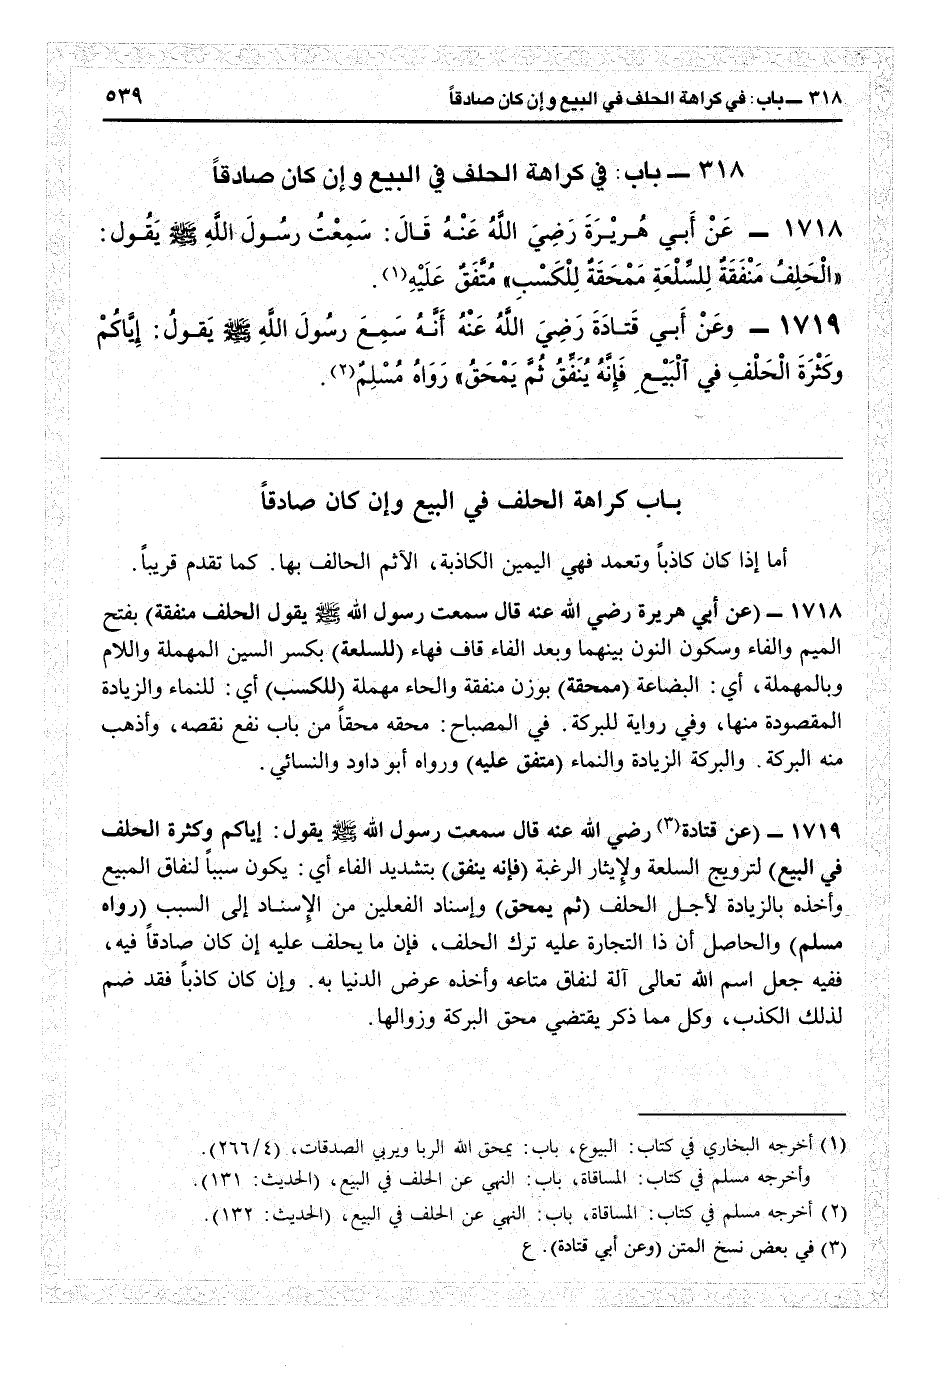 ٣١٨ ــ باب: في كراهة الحلف في البيع وإن كان صادقاً ٥٣٩
٣١٨ ــ باب: في كراهة الحلف في البيع وإن كان صادقاً
١٧١٨ ــ عَنْ أَبي هُرِيْرَةَ رَضِيَ اللَّهُ عَنْهُ قَالَ: سَمِعْتُ رسُولَ اللَّهِ ﷺ يَقُول:
«الْحَلِفُ مَنْفَقَةٌ لِلسِّلْعَةِ مَمْحَقَةٌ لِلْكَسْبِ» مُتَّفَقٌ عَلَيْهِ(١).
١٧١٩ ــ وعَنْ أَبي قَتادَةَ رَضِيَ اللَّهُ عَنْهُ أَنَّهُ سَمِعَ رسُولَ اللَّهِ ﷺ يَقولُ: إِيَّاكُمْ
وكَثْرَةَ الْحَلْفِ في ٱلْبَيْعِ فَإِنَّهُ يُنَفِّقُ ثُمَّ يَمْحَقُ» رَوَاهُ مُسْلِمٌ(٢).
باب كراهة الحلف في البيع وإن كان صادقاً
أما إذا كان كاذباً وتعمد فهي اليمين الكاذبة، الآثم الحالف بها. كما تقدم قريباً.
١٧١٨ ــ (عن أبي هريرة رضي الله عنه قال سمعت رسول الله ﷺ يقول الحلف منفقة) بفتح
الميم والفاء وسكون النون بينهما وبعد الفاء قاف فهاء (للسلعة) بكسر السين المهملة واللام
وبالمهملة، أي: البضاعة (ممحقة) بوزن منفقة والحاء مهملة (للكسب) أي: للنماء والزيادة
المقصودة منها، وفي رواية للبركة. في المصباح: محقه محقاً من باب نفع نقصه، وأذهب
منه البركة. والبركة الزيادة والنماء (متفق عليه) ورواه أبو داود والنسائي.
١٧١٩ ــ (عن قتادة(٣) رضي الله عنه قال سمعت رسول الله ﷺ يقول: إياكم وكثرة الحلف
في البيع) لترويج السلعة ولإيثار الرغبة (فإنه ينفق) بتشديد الفاء أي: يكون سبباً لنفاق المبيع
وأخذه بالزيادة لأجل الحلف (ثم يمحق) وإسناد الفعلين من الإسناد إلى السبب (رواه
مسلم) والحاصل أن ذا التجارة عليه ترك الحلف، فإن ما يحلف عليه إن كان صادقاً فيه،
ففيه جعل اسم الله تعالى آلة لنفاق متاعه وأخذه عرض الدنيا به. وإن كان كاذباً فقد ضم
لذلك الكذب، وكل مما ذكر يقتضي محق البركة وزوالها.
(١) أخرجه البخاري في كتاب: البيوع، باب: يمحق الله الربا ويربي الصدقات، (٢٦٦/٤).
وأخرجه مسلم في كتاب: المساقاة، باب: النهي عن الحلف في البيع، (الحديث: ١٣١).
(٢) أخرجه مسلم في كتاب: المساقاة، باب: النهي عن الحلف في البيع، (الحديث: ١٣٢).
(٣) في بعض نسخ المتن (وعن أبي قتادة). ع